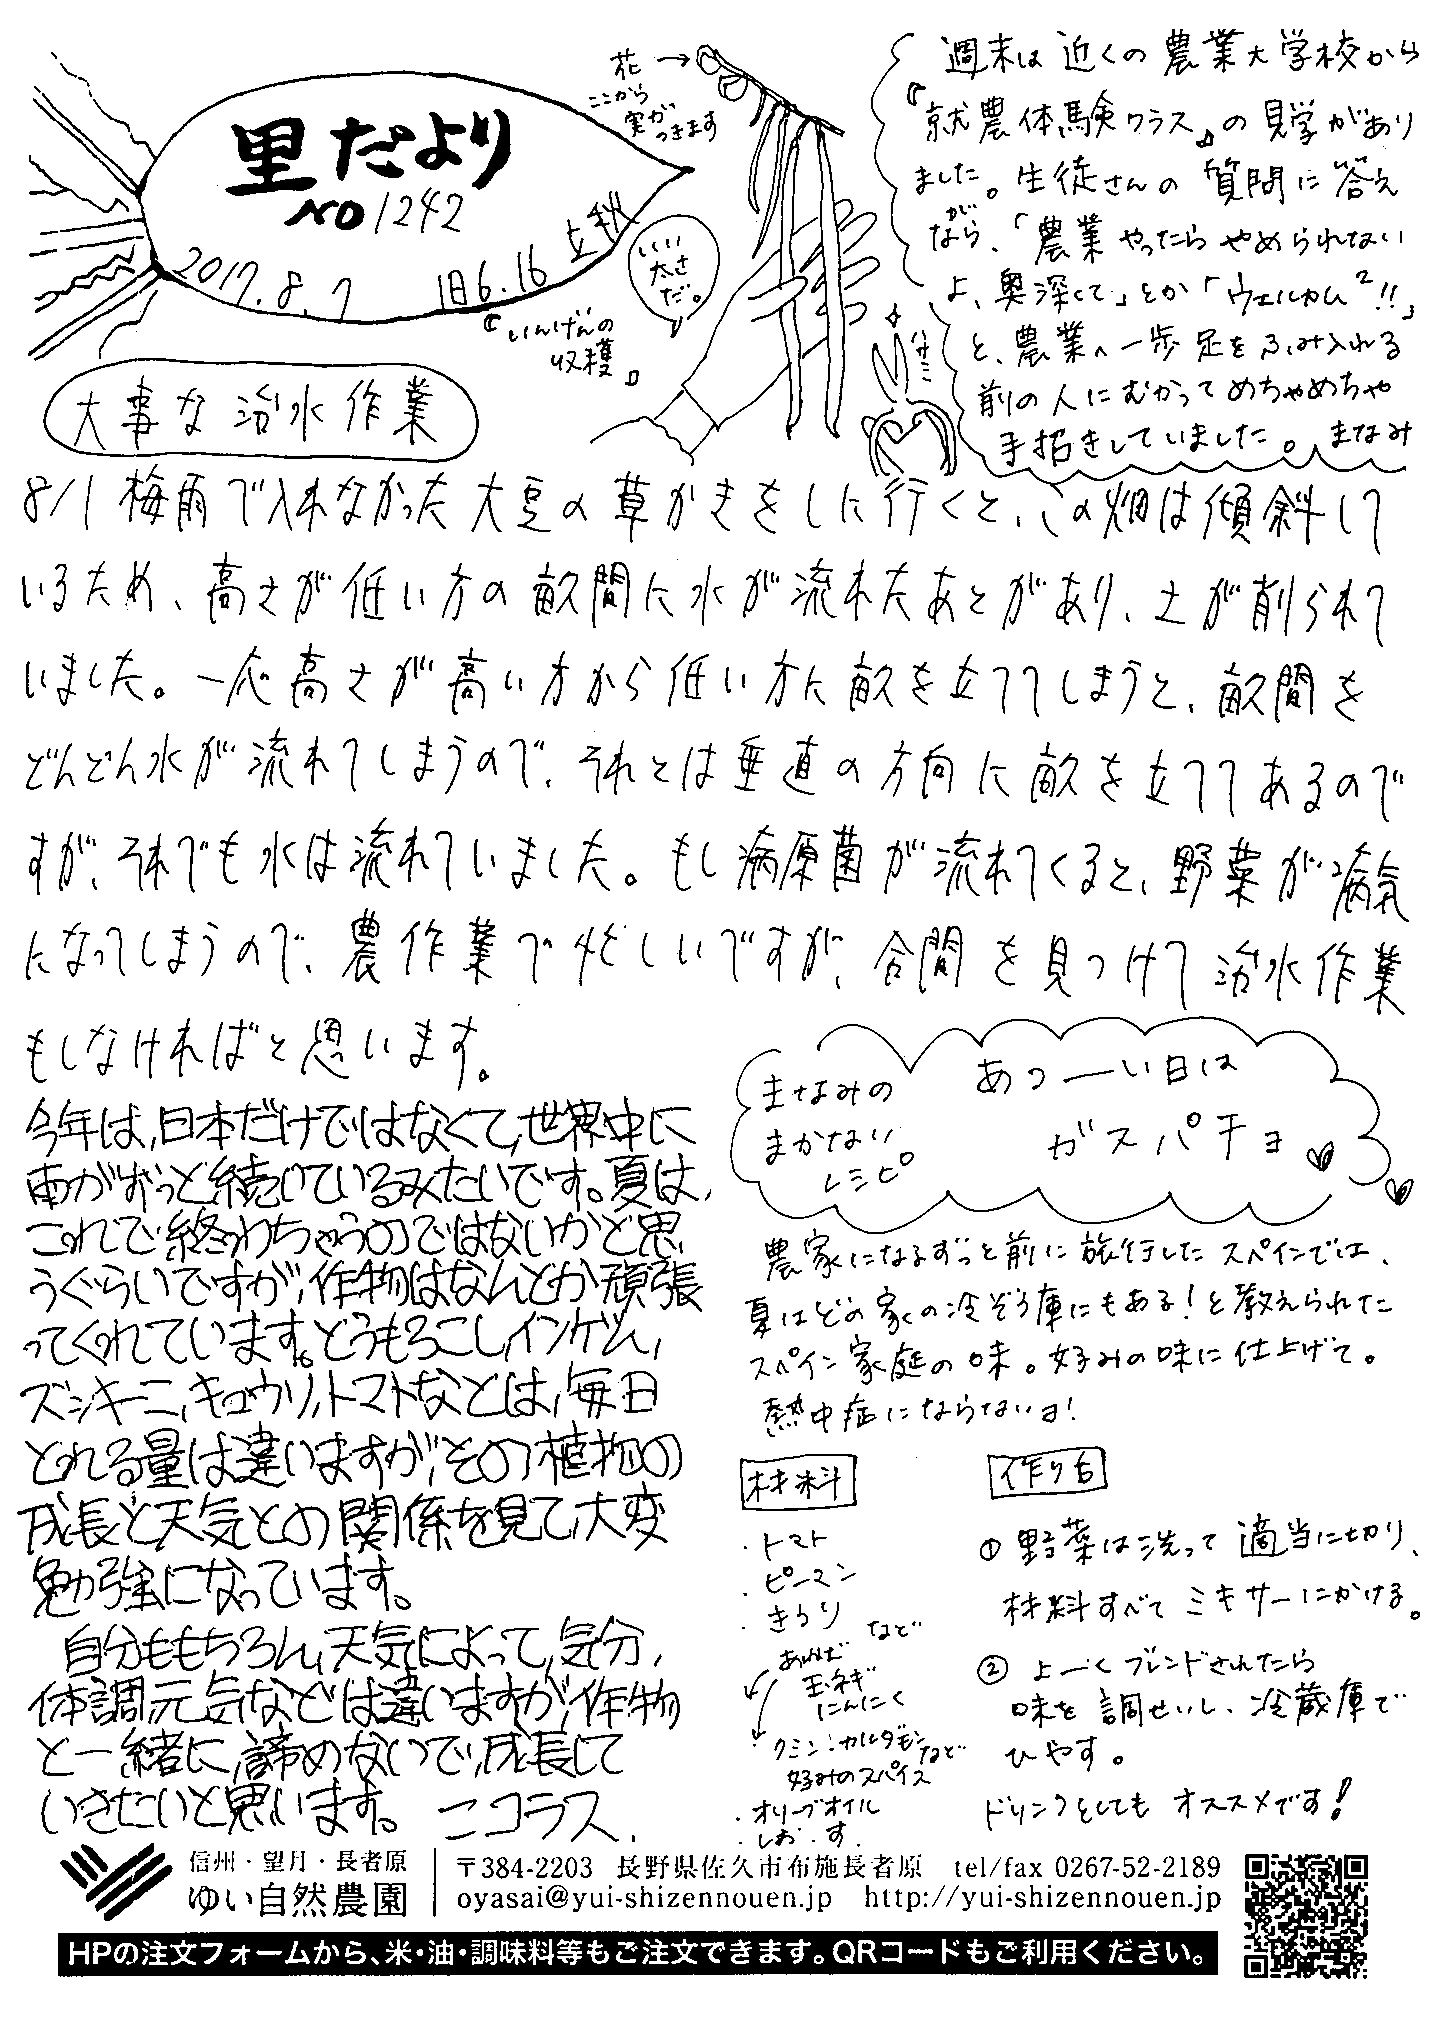 里だより
NO 1242
2017.8.7 旧6.16 立秋
花→
ここから
実が
つきます
いい
太さ
だ。
『いんげんの
収穫』
ハサミ
週末は近くの農業大学校から
『就農体験クラス』の見学があり
ました。生徒さんの質問に答え
ながら、「農業やったらやめられない
よ、奥深くて」とか「ウェルカム²!!」
と、農業へ一歩足をふみ入れる
前の人にむかってめちゃめちゃ
手招きしていました。 まなみ
大事な治水作業
8/1 梅雨で入れなかった大豆の草かきをしに行くと、この畑は傾斜して
いるため、高さが低い方の畝間に水が流れたあとがあり、土が削られて
いました。一応高さが高い方から低い方に畝を立ててしまうと、畝間を
どんどん水が流れてしまうので、それとは垂直の方向に畝を立ててあるので
すが、それでも水は流れていました。もし病原菌が流れてくると、野菜が病気
になってしまうので、農作業で忙しいですが、合間を見つけて治水作業
もしなければと思います。
今年は、日本だけではなくて、世界中に
雨がずっと続いているみたいです。夏は、
これで終わちゃうのではないかと思
うぐらいですが、作物はなんとか頑張
ってくれています。とうもろこし、インゲン、
ズッキーニ、キュウリ、トマトなどは、毎日
とれる量は違いますが、その植物の
成長と天気との関係を見て、大変
勉強になっています。
自分ももちろん、天気によって、気分、
体調、元気などは違いますが、作物
と一緒に、諦めないで、成長して
いきたいと思います。 ニコラス.
まなみの
まかない
レシピ
あつーい日は
ガスパチョ
農家になるずっと前に旅行したスペインでは、
夏はどの家の冷ぞう庫にもある!と教えられた
スペイン家庭の味。好みの味に仕上げて。
熱中症にならないヨ!
材料
・トマト
・ピーマン
・きうり など
あれば
玉ネギ
にんにく
・クミン、カルダモンなど
好みのスパイス
・オリーブオイル
・しお ・す
作り方
① 野菜は洗って適当に切り、
材料すべてミキサーにかける。
② よーくブレンドされたら
味を調せいし、冷蔵庫で
ひやす。
ドリンクとしてもオススメです!
信州・望月・長者原
ゆい自然農園
〒384-2203 長野県佐久市布施長者原 tel/fax 0267-52-2189
oyasai@yui-shizennouen.jp http://yui-shizennouen.jp
HPの注文フォームから、米・油・調味料等もご注文できます。QRコードもご利用ください。